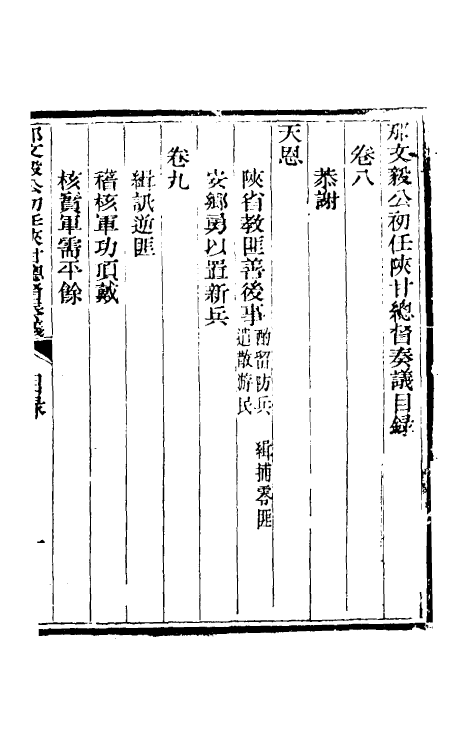 那文毅公初任陝甘總督奏議目錄
卷八
恭謝
天恩
陝省教匪善後事 酌留防兵 緝捕零匪
遣散游民
安鄉勇以置新兵
卷九
緝訊逆匪
稽核軍功頂戴
核實軍需平餘
那文毅公初任陝甘總督奏議 目錄 一